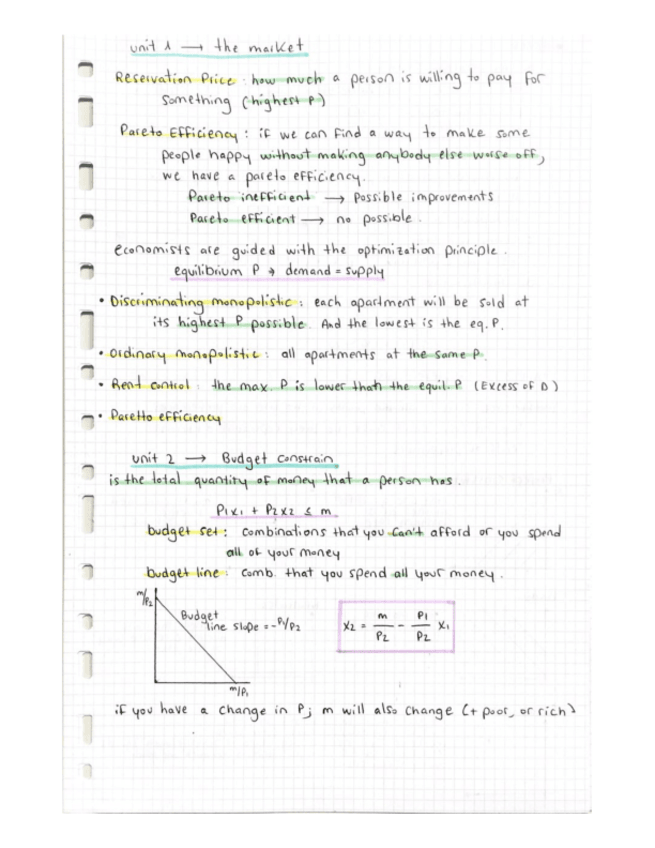 unit 1 → the market
Reservation Price: how much a person is willing to pay for
something (highest P)
Pareto Efficiency: if we can find a way to make some
people happy without making anybody else worse off,
we have a pareto efficiency.
Pareto inefficient → Possible improvements
Pareto efficient → no possible.
economists are guided with the optimization principle.
equilibrium P → demand = supply
• Discriminating monopolistic: each apartment will be sold at
its highest P possible. And the lowest is the eq. P.
• Ordinary monopolistic: all apartments at the same P.
• Rent control: the max. P is lower than the equil. P (Excess of D)
• Paretto efficiency
unit 2 → Budget constrain
is the total quantity of money that a person has.
P1x1 + P2x2 ≤ m
budget set: combinations that you can't afford or you spend
all of your money
budget line: comb. that you spend all your money.
m/P2
Budget
line slope = -P1/P2
x2 = m/P2 - P1/P2 x1
m/P1
if you have a change in P; m will also change (+ poor, or rich)